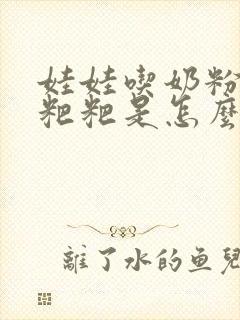 娃娃喫奶粉
粑粑是怎麼
離了水的鱼兒